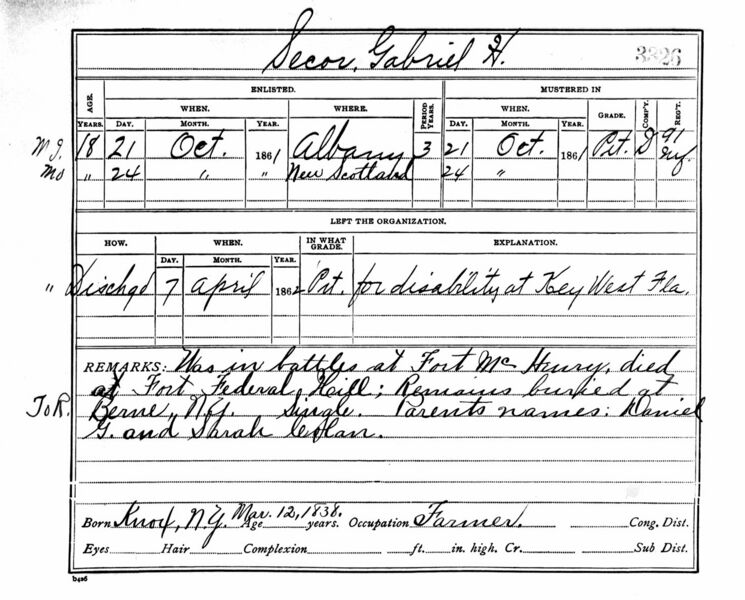 Secor, Gabriel H. 3326
AGE. ENLISTED. MUSTERED IN
YEARS. WHEN. WHERE. PERIOD YEARS. WHEN. GRADE. COMP'Y. REG'T.
DAY. MONTH. YEAR. DAY. MONTH. YEAR.
18 21 Oct. 1861 Albany 3 21 Oct. 1861 Pvt. D 91 Inf.
Mo " 24 " " New Scotland 24 "
LEFT THE ORGANIZATION.
HOW. WHEN. IN WHAT GRADE. EXPLANATION.
DAY. MONTH. YEAR.
" Dischgd 7 April 1862 Pvt. for disability at Key West Fla.
REMARKS: Was in battles at Fort Mc Henry, died
at Fort Federal Hill; Remains buried at
ToR. Berne, N.Y. Single. Parents names: Daniel
G. and Sarah
Born Knox, N.Y. Mar. 12, 1838. Age years. Occupation Farmer. Cong. Dist.
Eyes Hair Complexion ft. in. high. Cr. Sub Dist.
b426